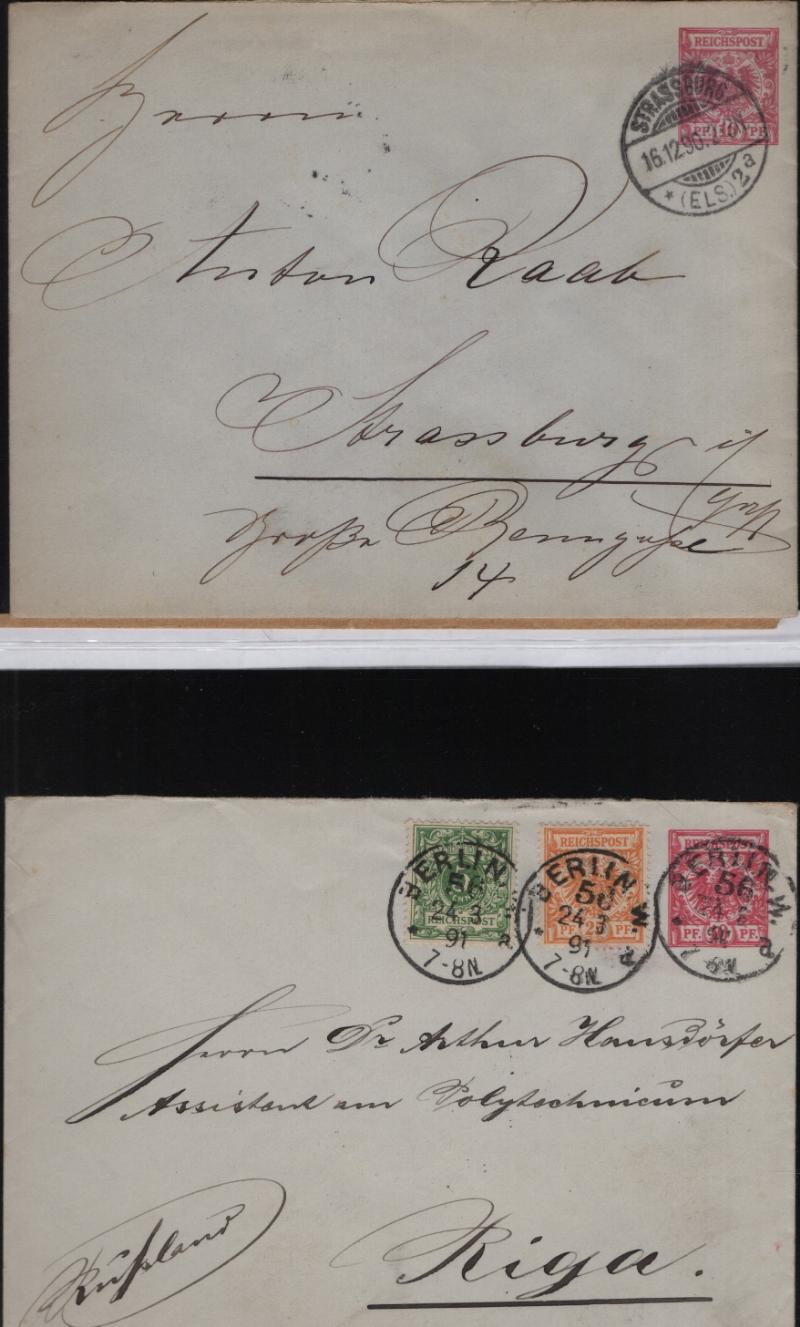 REICHSPOST
PF. 10 PF.
STRASSBURG
16.12.90.
* (ELS.) 2a
Herrn
Anton Raab
Strassburg i/
Große Renngasse
14
REICHSPOST
BERLIN, W.
56
24.3
91
7-8N.
* a
REICHSPOST
PF. 25 PF.
BERLIN, W.
56
24.3
91
7-8N.
* a
REICHSPOST
PF. PF.
BERLIN, W.
56
24.3
91
8N.
* a
Herrn Dr Arthur Hausdörfer
Assistent am Polytechnicum
Rußland
Riga.